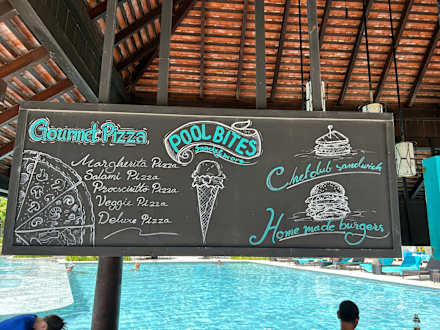 Gourmet Pizza
Margherita Pizza
Salami Pizza
Prosciutto Pizza
Veggie Pizza
Deluxe Pizza
POOL BITES
Chef club sandwich
Home made burgers